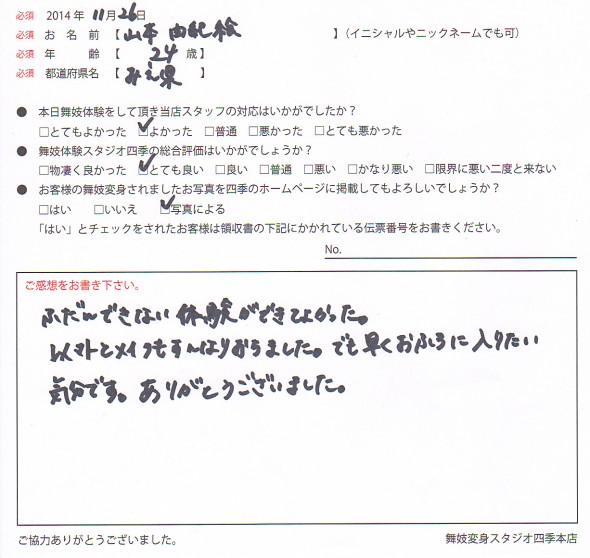 必須 2014年 11月26日
必須 お 名 前 【 山本 由紀絵 】(イニシャルやニックネームでも可)
必須 年 齢 【 24 歳】
必須 都道府県名 【 みえ県 】
● 本日舞妓体験をして頂き当店スタッフの対応はいかがでしたか?
□とてもよかった ☑よかった □普通 □悪かった □とても悪かった
● 舞妓体験スタジオ四季の総合評価はいかがでしょうか?
□物凄く良かった ☑とても良い □良い □普通 □悪い □かなり悪い □限界に悪い二度と来ない
● お客様の舞妓変身されましたお写真を四季のホームページに掲載してもよろしいでしょうか?
□はい □いいえ ☑写真による
「はい」とチェックをされたお客様は領収書の下記にかかれている伝票番号をお書きください。
No.
ご感想をお書き下さい。
ふだんできない体験ができてよかった。
メイクも ました。でも早くおふろに入りたい
気分です。ありがとうございました。
ご協力ありがとうございました。
舞妓変身スタジオ四季本店